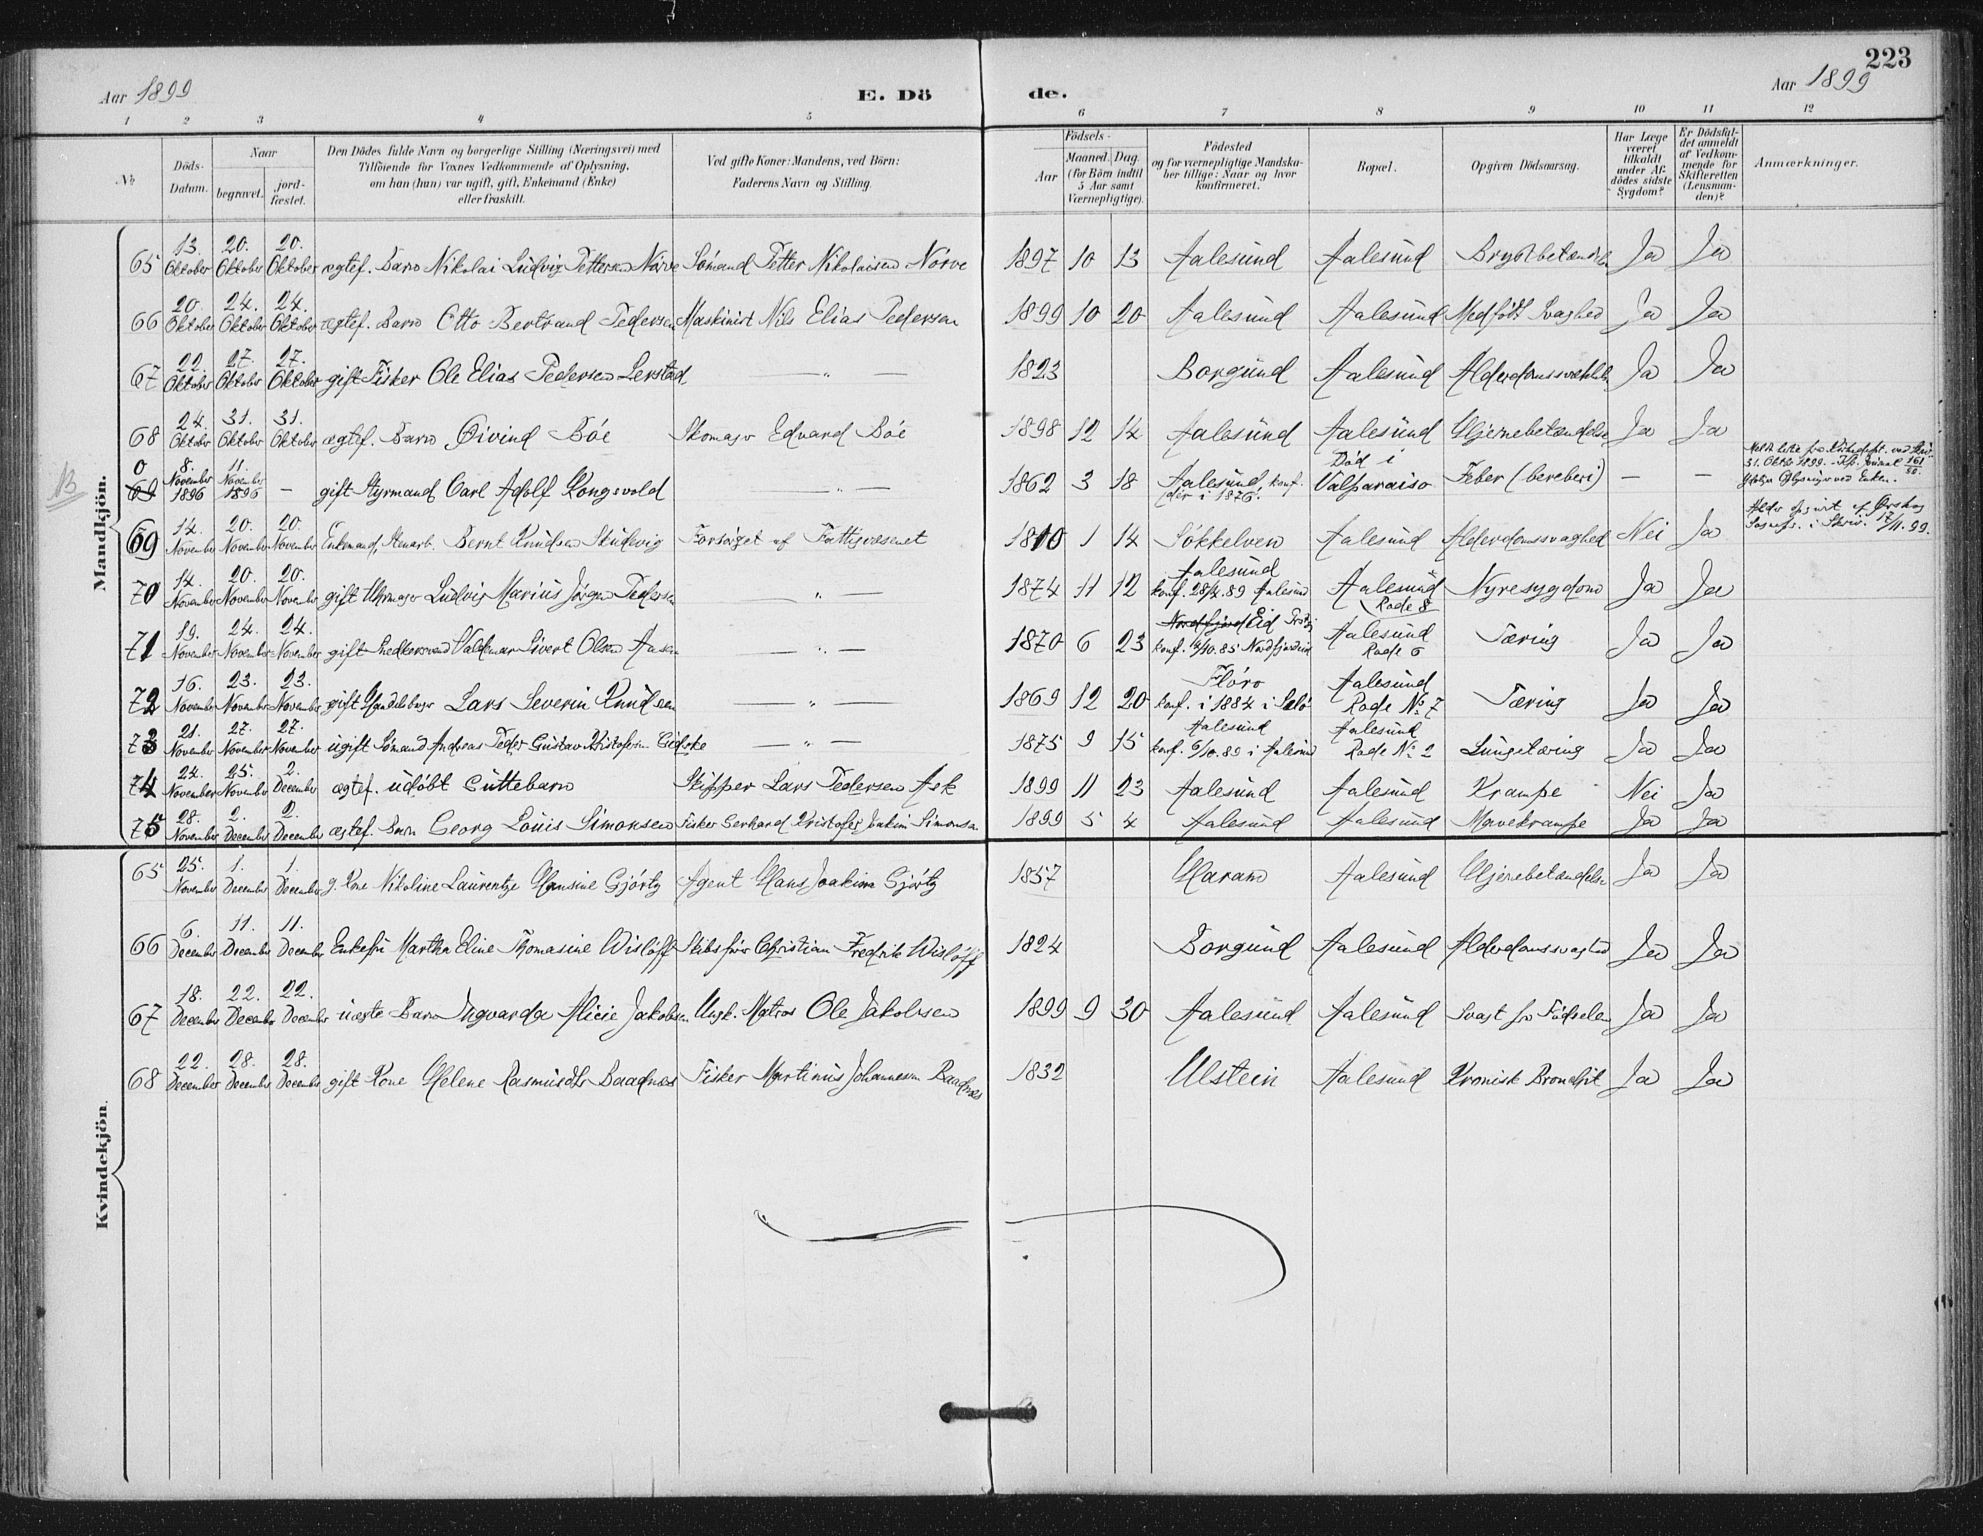 223
Aar 1899
E. Dö
de.
Aar 1899
1 2 3 4 5 6 7 8 9 10 11 12
No
Döds-Datum.
Naar
begravet.
jord-fæstet.
Den Dödes fulde Navn og borgerlige Stilling (Næringsvei) med
Tilföiende for Voxnes Vedkommende af Oplysning,
om han (hun) var ugift, gift, Enkemand (Enke)
eller fraskilt.
Ved gifte Koner: Mandens, ved Börn:
Faderens Navn og Stilling.
Födsels-
Aar
Maaned. Dag.
(for Börn indtil
5 Aar samt
Værnepligtige).
Födested
og for værnepligtige Mandska-
ber tillige: Naar og hvor
konfirmeret.
Bopæl.
Opgiven Dödsaarsag.
Har Læge
været
tilkaldt
under Af-
dödes sidste
Sygdom?
Er Dödsfal-
det anmeldt
af Vedkom-
mende for
Skifteretten
(Lensman-
den)?
Anmærkninger.
Mandkjön.
65 13. Oktober 20. Oktober 20. Oktober ægtef. Barn Nikolai Ludvig Pettersen Nørve Sømand Petter Nikolaisen Nørve 1897 10 13 Aalesund Aalesund Ja Ja
66 20. Oktober 24. Oktober 24. Oktober ægtef. Barn Otto Bertrand Pedersen Maskinist Nils Elias Pedersen 1899 10 20 Aalesund Aalesund Medfødt Svaghed Ja Ja
67 22. Oktober 27. Oktober 27. Oktober gift Fisker Ole Elias Pedersen Lerstad — „ — 1823 Borgund Aalesund Ja Ja
68 24. Oktober 31. Oktober 31. Oktober ægtef. Barn Øivind Bøe Skomager Edvard Bøe 1898 12 14 Aalesund Aalesund Hjernebetændelse Ja Ja
0 69 8. November 1896 11. November 1896 — gift Styrmand Carl Adolf Kongsvold — „ — 1862 3 18 Aalesund, konf. der i 1876. Død i Valparaiso Feber (bereberi) — —
69 14. November 20. November 20. November Enkemand, Bernt Knudsen Forsørget af Fattigvæsenet 1810 1 14 Søkkelven Aalesund Alderdomssvaghed Nei Ja
70 14. November 20. November 20. November gift Uhrmager Ludvig Marius Jørgen Pedersen — „ — 1874 11 12 Aalesund konf. 28/4.89 Aalesund Aalesund Rode 8 Nyresygdom Ja Ja
71 19. November 24. November 24. November gift Valdemar Sivert Olsen Aasen — „ — 1870 6 23 Nordfjord Eid Aalesund Rode 6 Tæring Ja Ja
72 16. November 23. November 23. November gift Lars Severin Knudsen — „ — 1869 12 20 Florø konf. i 1884 i Selø Aalesund Rode No. 7 Tæring Ja Ja
73 21. November 27. November 27. November ugift Sømand Andreas Peder Gustav Kristofersen Giske — „ — 1875 9 15 Aalesund konf. 6/10.89 i Aalesund Aalesund Rode No. 2 Lungetæring Ja Ja
74 24. November 25. November 2. December ægtef. udøbt Guttebarn Skipper Lars Pedersen Ask 1899 11 23 Aalesund Aalesund Krampe Nei Ja
75 28. November 2. December 2. December ægtef. Barn Georg Louis Simonsen Fisker Gerhard Kristofer Joakim Simonsen 1899 5 4 Aalesund Aalesund Mavekrampe Ja Ja
Kvindekjön.
65 25. November 1. December 1. December g. Kone Nikoline Laurentze Hansine Gjørtz Agent Hans Joakim Gjørtz 1857 Haram Aalesund Hjernebetændelse Ja Ja
66 6. December 11. December 11. December Enkefru Martha Eline Thomasine Wisløff Skibsfører Christian Fredrik Wisløff 1824 Borgund Aalesund Alderdomssvaghed Ja Ja
67 18. December 22. December 22. December uægte Barn Ingvarda Alicie Jakobsen Ungk. Matros Ole Jakobsen 1899 9 30 Aalesund Aalesund Svag fra Fødselen Ja Ja
68 22. December 28. December 28. December gift Kone Helene Rasmusdtr Baadnæs Fisker Martinus Johannesen Baadnæs 1832 Ulstein Aalesund Kronisk Bronchit Ja Ja